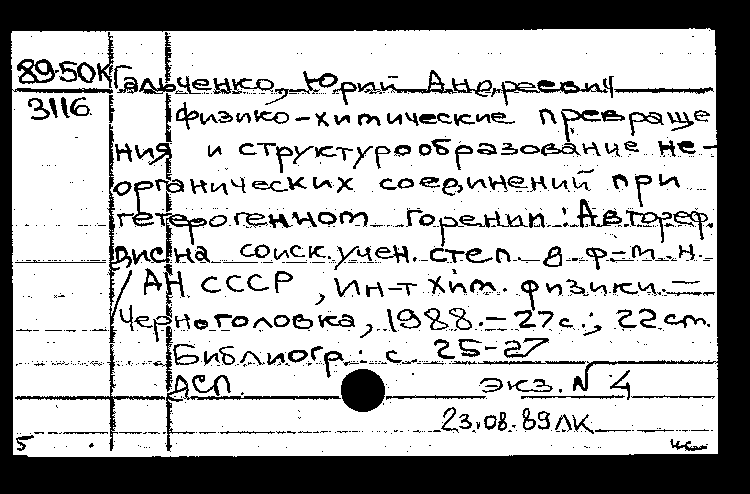 89-50К Гальченко, Юрий Андреевич
3116 физико-химические превраще
ния и структурообразование не-
органических соединений при
гетерогенном горении : Автореф.
дис на соиск. учен. степ. д. ф-м. н.
/ АН СССР, Ин-т хим. физики. —
Черноголовка, 1988. – 27 с.; 22 см.
Библиогр.: с. 25-27
ДСП. экз. № 4
23.08.89 ЛК
5